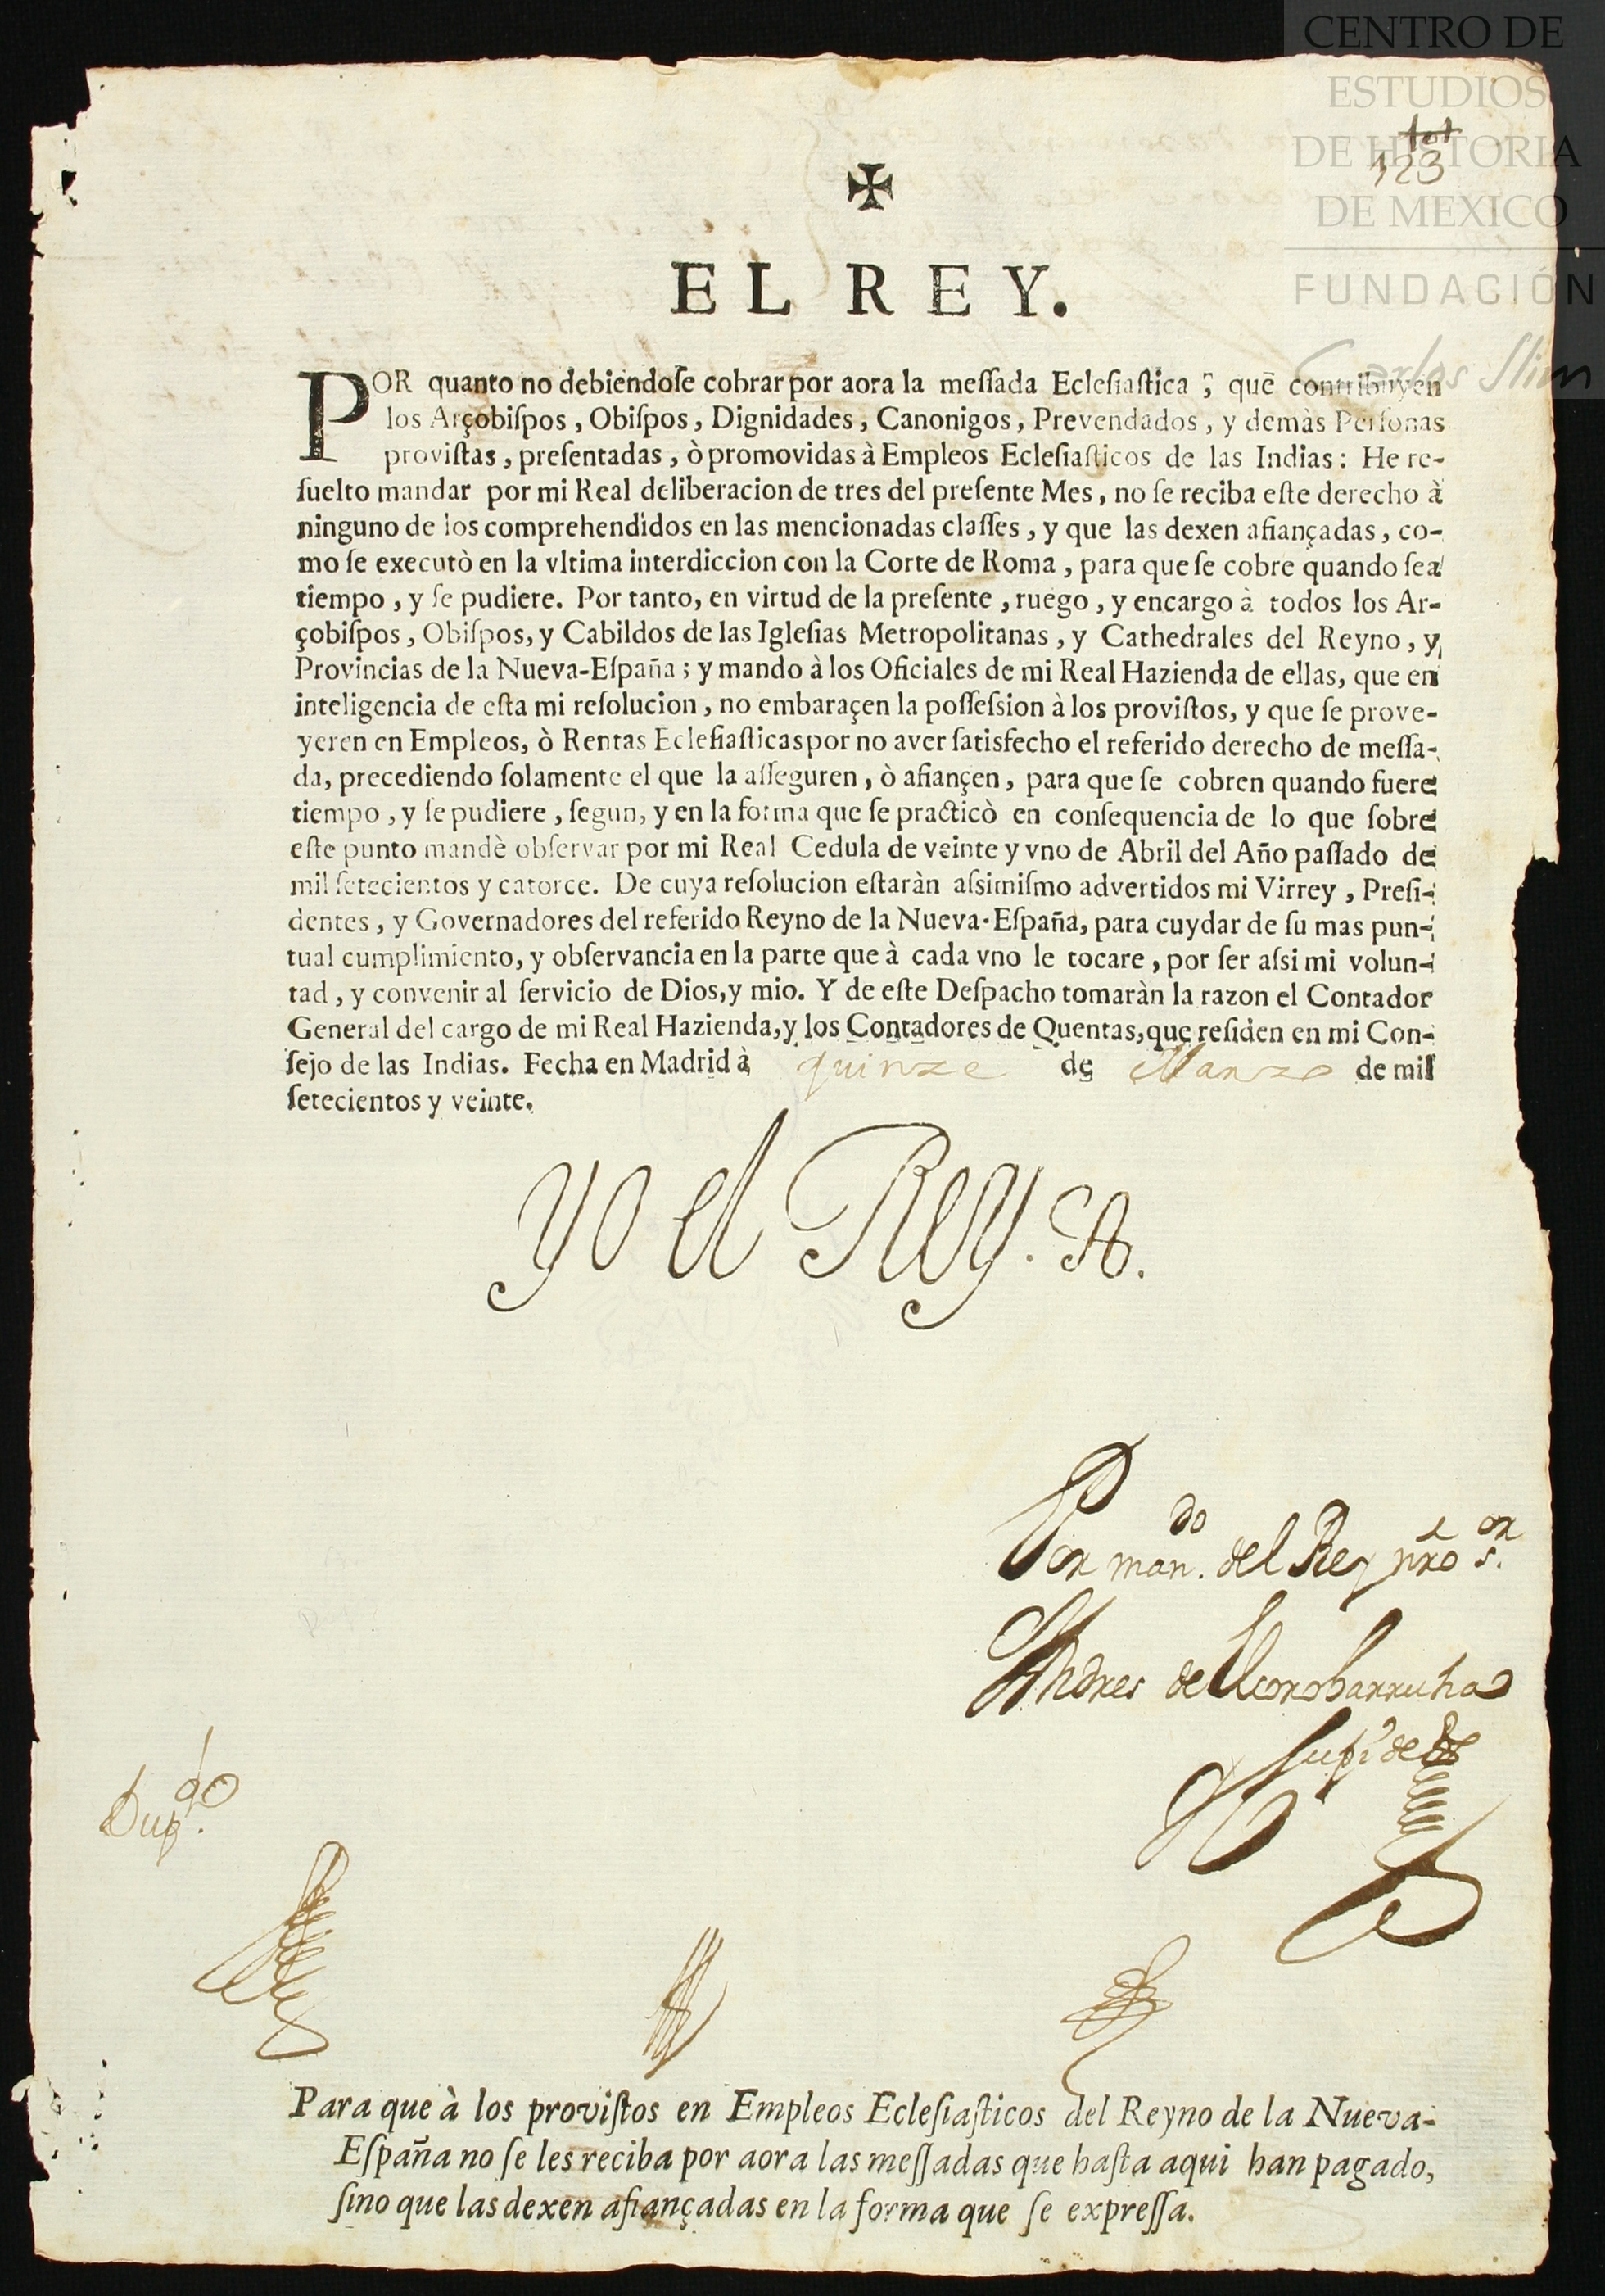 CENTRO DE
ESTUDIOS
DE HISTORIA
DE MEXICO
FUNDACIÓN
Carlos Slim
123
✠
EL REY.
POR quanto no debiendose cobrar por aora la messada Eclesiastica; que contribuyen
los Arçobispos, Obispos, Dignidades, Canonigos, Prevendados, y demàs Personas
provistas, presentadas, ò promovidas à Empleos Eclesiasticos de las Indias: He re-
suelto mandar por mi Real deliberacion de tres del presente Mes, no se reciba este derecho à
ninguno de los comprehendidos en las mencionadas classes, y que las dexen afiançadas, co-
mo se executò en la vltima interdiccion con la Corte de Roma, para que se cobre quando sea
tiempo, y se pudiere. Por tanto, en virtud de la presente, ruego, y encargo à todos los Ar-
çobispos, Obispos, y Cabildos de las Iglesias Metropolitanas, y Cathedrales del Reyno, y
Provincias de la Nueva-España; y mando à los Oficiales de mi Real Hazienda de ellas, que en
inteligencia de esta mi resolucion, no embaraçen la possession à los provistos, y que se prove-
yeren en Empleos, ò Rentas Eclesiasticas por no aver satisfecho el referido derecho de messa-
da, precediendo solamente el que la asseguren, ò afiançen, para que se cobren quando fuere
tiempo, y se pudiere, segun, y en la forma que se practicò en consequencia de lo que sobre
este punto mandè observar por mi Real Cedula de veinte y vno de Abril del Año passado de
mil setecientos y catorce. De cuya resolucion estaràn assimismo advertidos mi Virrey, Presi-
dentes, y Governadores del referido Reyno de la Nueva-España, para cuydar de su mas pun-
tual cumplimiento, y observancia en la parte que à cada vno le tocare, por ser assi mi volun-
tad, y convenir al servicio de Dios, y mio. Y de este Despacho tomaràn la razon el Contador
General del cargo de mi Real Hazienda, y los Contadores de Quentas, que residen en mi Con-
sejo de las Indias. Fecha en Madrid à quinze de Marzo de mil
setecientos y veinte.
Yo el Rey.
Por man.do del Rey nro s.or
Andres de Elcorobarrutia
Dup.do
Para que à los provistos en Empleos Eclesiasticos del Reyno de la Nueva-
España no se les reciba por aora las messadas que hasta aqui han pagado,
sino que las dexen afiançadas en la forma que se expressa.